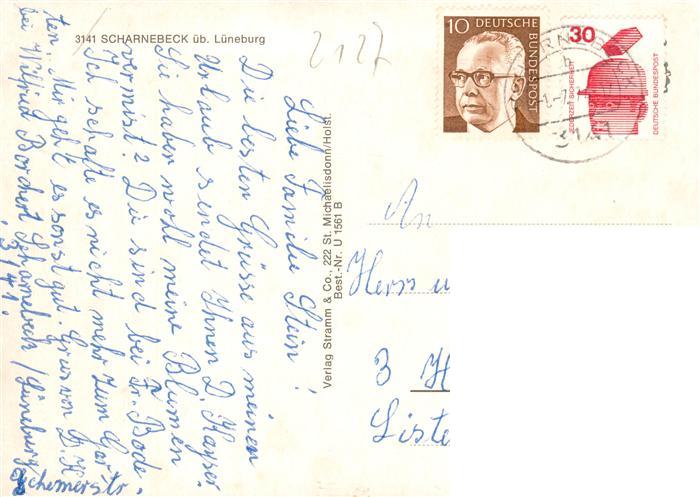 3141 SCHARNEBECK üb. Lüneburg
2127
Liebe Familie Stein!
Die besten Grüsse aus meinen
Urlaub sendet Ihnen D. Kayser.
Sie haben wohl meine Blumen
vermist? Die sind bei Fr. Bode.
Ich schaffe es nicht mehr zum Gar-
ten. Mir geht es sonst gut. Grus von D. K
bei Wilfried Borchert Scharnebeck/Lüneburg
3141.
Verlag Stramm & Co., 222 St. Michaelisdonn/Holst.
Best.-Nr. U 1561 B
10
DEUTSCHE
BUNDESPOST
30
JEDERZEIT SICHERHEIT
DEUTSCHE BUNDESPOST
3141
An
Herrn u
3 H
Liste